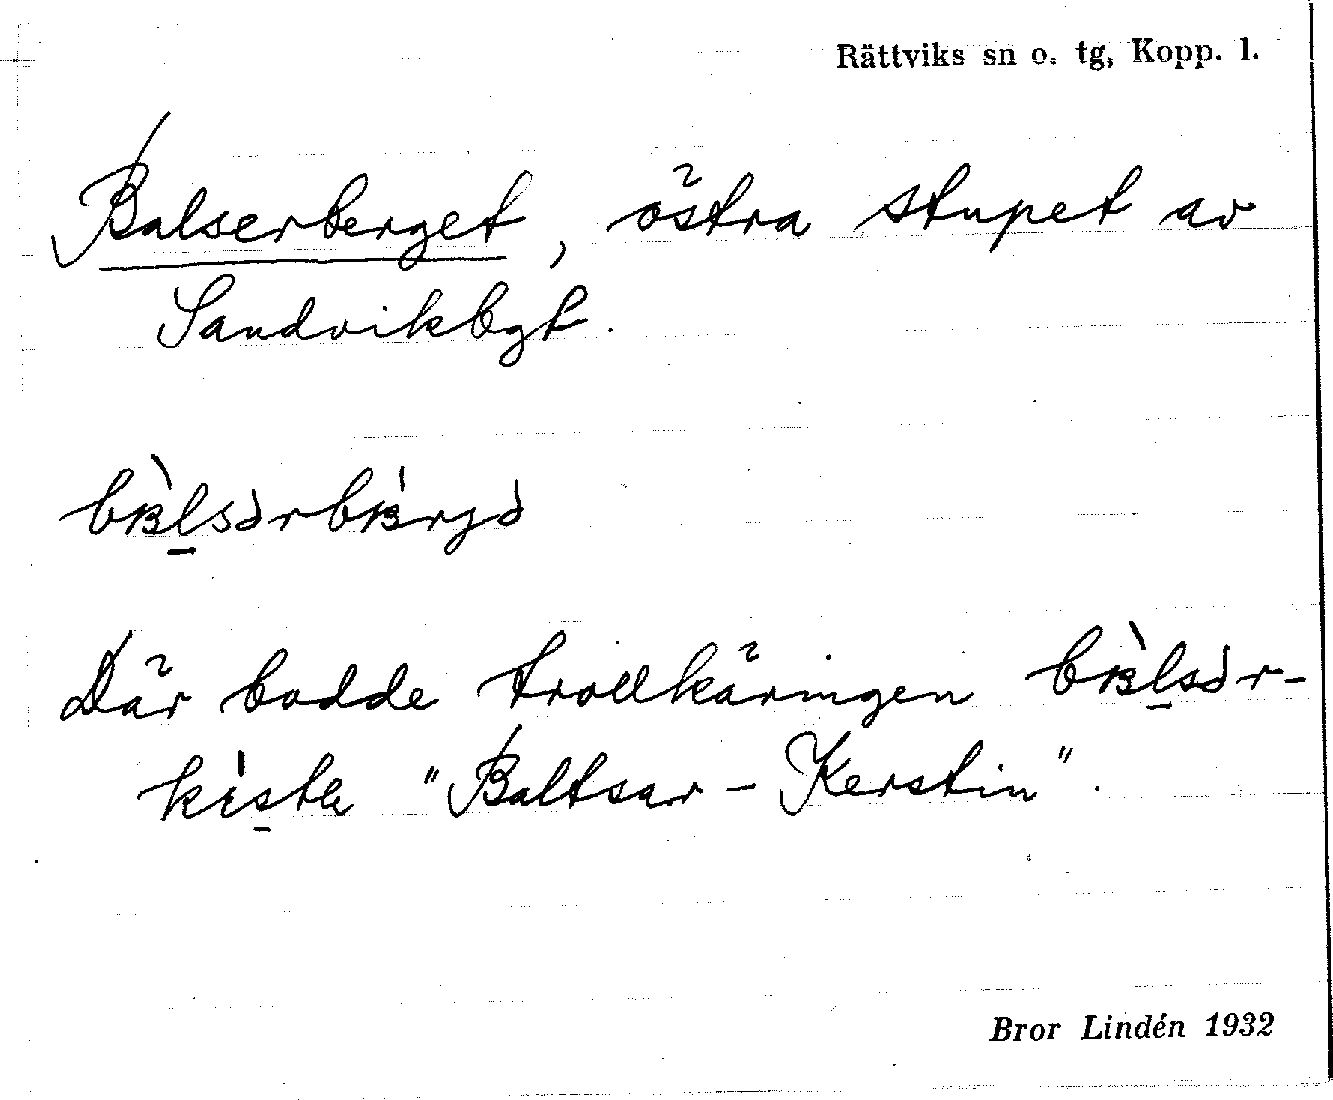 Rättviks sn o. tg, Kopp. l.
Balserberget, östra stupet av
Sandvikbgt.
Där bodde trollkäringen
"Baltsar-Kerstin".
Bror Lindén 1932